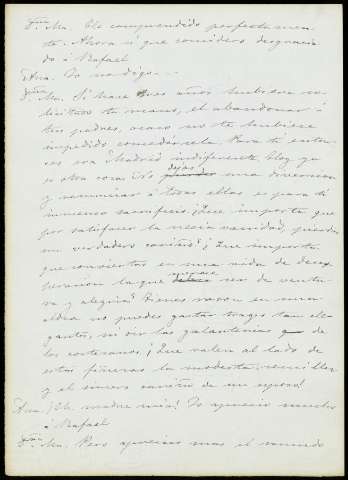 D.ª Ma. He comprendido perfectamen-
te. Ahora si que considero desgracia-
do á Rafael
Ana. Yo no digo...
D.ª Ma. Si hace tres años hubiese so-
licitado tu mano, el abandonar á
tus padres, acaso no te hubiese
impedido concedersela. Para ti enton-
ces era Madrid indiferente. Hoy ya
es otra cosa. dejas una diversion
y renunciar á todas ellas es para ti
inmenso sacrificio. ¿Que importa que
por satisfacer la necia vanidad, pierdas
un verdadero cariño? ¿Que importa
que conviertas en una vida de deses-
peracion la que parece ser de ventu-
ra y alegria? Tienes razon en una
aldea no puedes gastar trages tan ele-
gantes, ni oir las galanterias de
los cortesanos. ¡Que valen al lado de
estas finezas la modesta sencillez
y el sincero cariño de un esposo!
Ana. ¡Oh, madre mia! Yo aprecio mucho
á Rafael
D.ª Ma. Pero aprecias mas el mundo